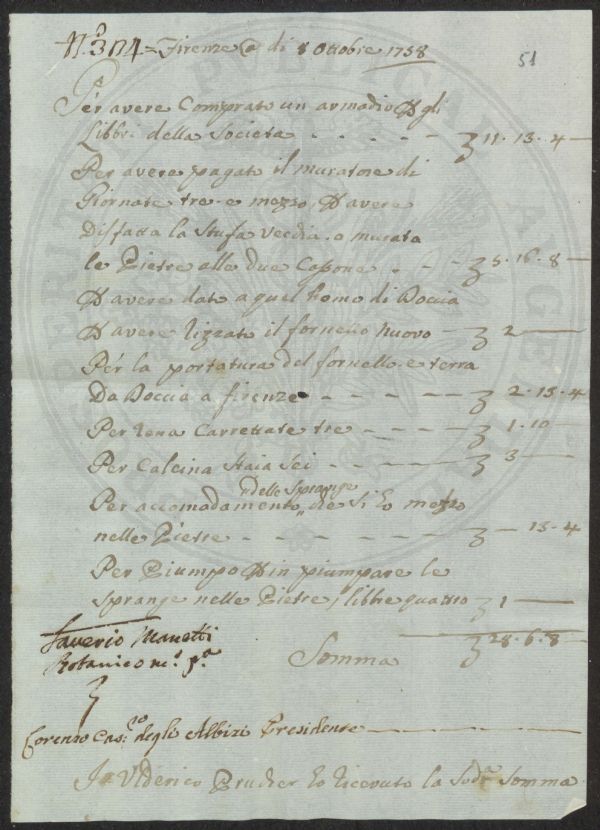 N.º 304 = Firenze @ di 8 Ottobre 1758
51
Per avere Comprato un armadio p gli
Libbri della Società - - - - - 11. 13. 4
Per avere pagato il muratore di
Giornate tre e mezzo, p avere
Disfatta la Stufa Vecchia, e murata
le Pietre alle due - - - 5. 16. 8
p avere dato a quel homo di Doccia
p avere rizzato il fornello nuovo - 2
Per la portatura del fornello e terra
Da Doccia a firenze - - - - - 2. 13. 4
Per rena Carrettate tre - - - - 1. 10
Per Calcina Staia Sei - - - - - 3
Per accomodamento delle Sprange che si è messo
nelle Pietre - - - - - - - 13. 4
Per Piumpo p in piumpare le
Sprange nelle Pietre, libbre quattro 1
Somma 28. 6. 8
Saverio Manetti
Botanico
Lorenzo degli Albizi Presidente
Io Uderico Prucher ho ricevuto la Sodª Somma